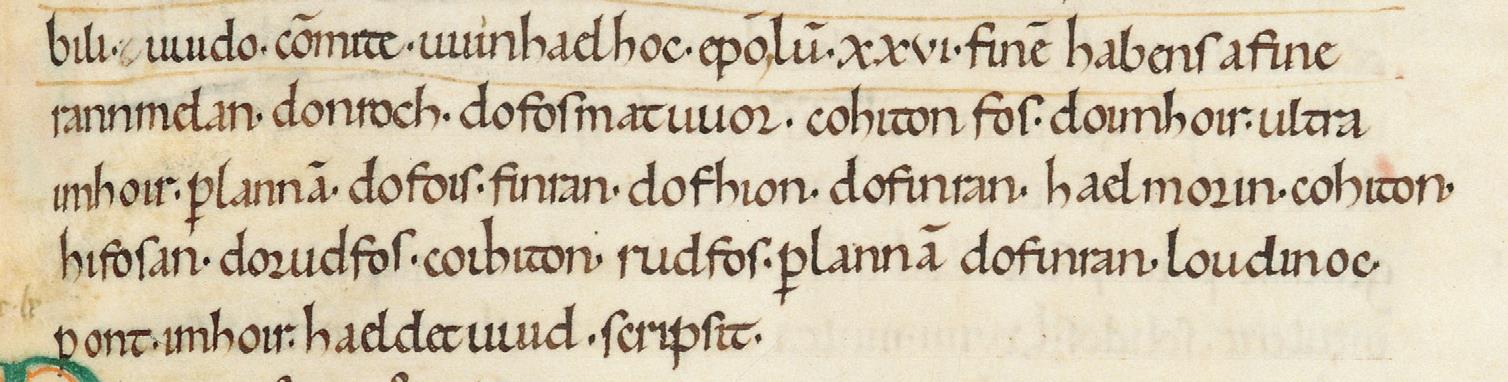 bili· uuido· cōmite · uuinhaelhoc· ep̄o,lū· xxvi· finē habens a fine
rannmelan· donroch· do fosmatuuor · cohiton fos· do imhoir· ultra
imhoir· ꝑ lannā· do fois· finran· do fhion· do finran· haelmorin· cohiton·
hi fosan· do rudfos· coihiton· rudfos· ꝑ lannā do finran· loudinoc·
pont· imhoir: haeldetuuid · scripsit·